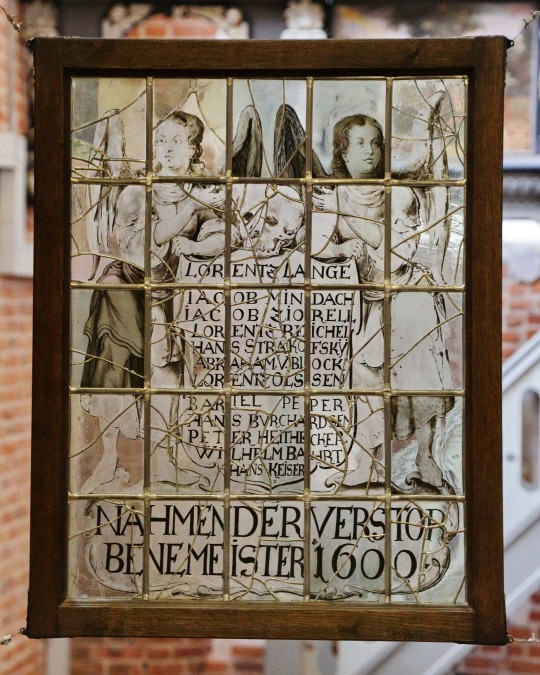 LORENTZ LANGE
IACOB MINDACH
IACOB ZIORELL
LORENTZ REICHEL
HANS STRAKOFSKY
ABRAHAM V. BLOCK
LORENTZ OLSSEN
BARTEL PEPER
HANS BVRCHARDSEN
PETER HEITHECKER
WILHELM BAHRT
HANS KEISER
NAHMEN DER VERSTOR
BENE MEISTER 1600